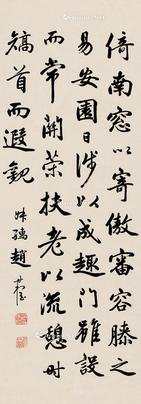 倚南窓以寄傲審容膝之
易安園日涉以成趣門雖設
而常關策扶老以流憩时
矯首而遐觀
趙世